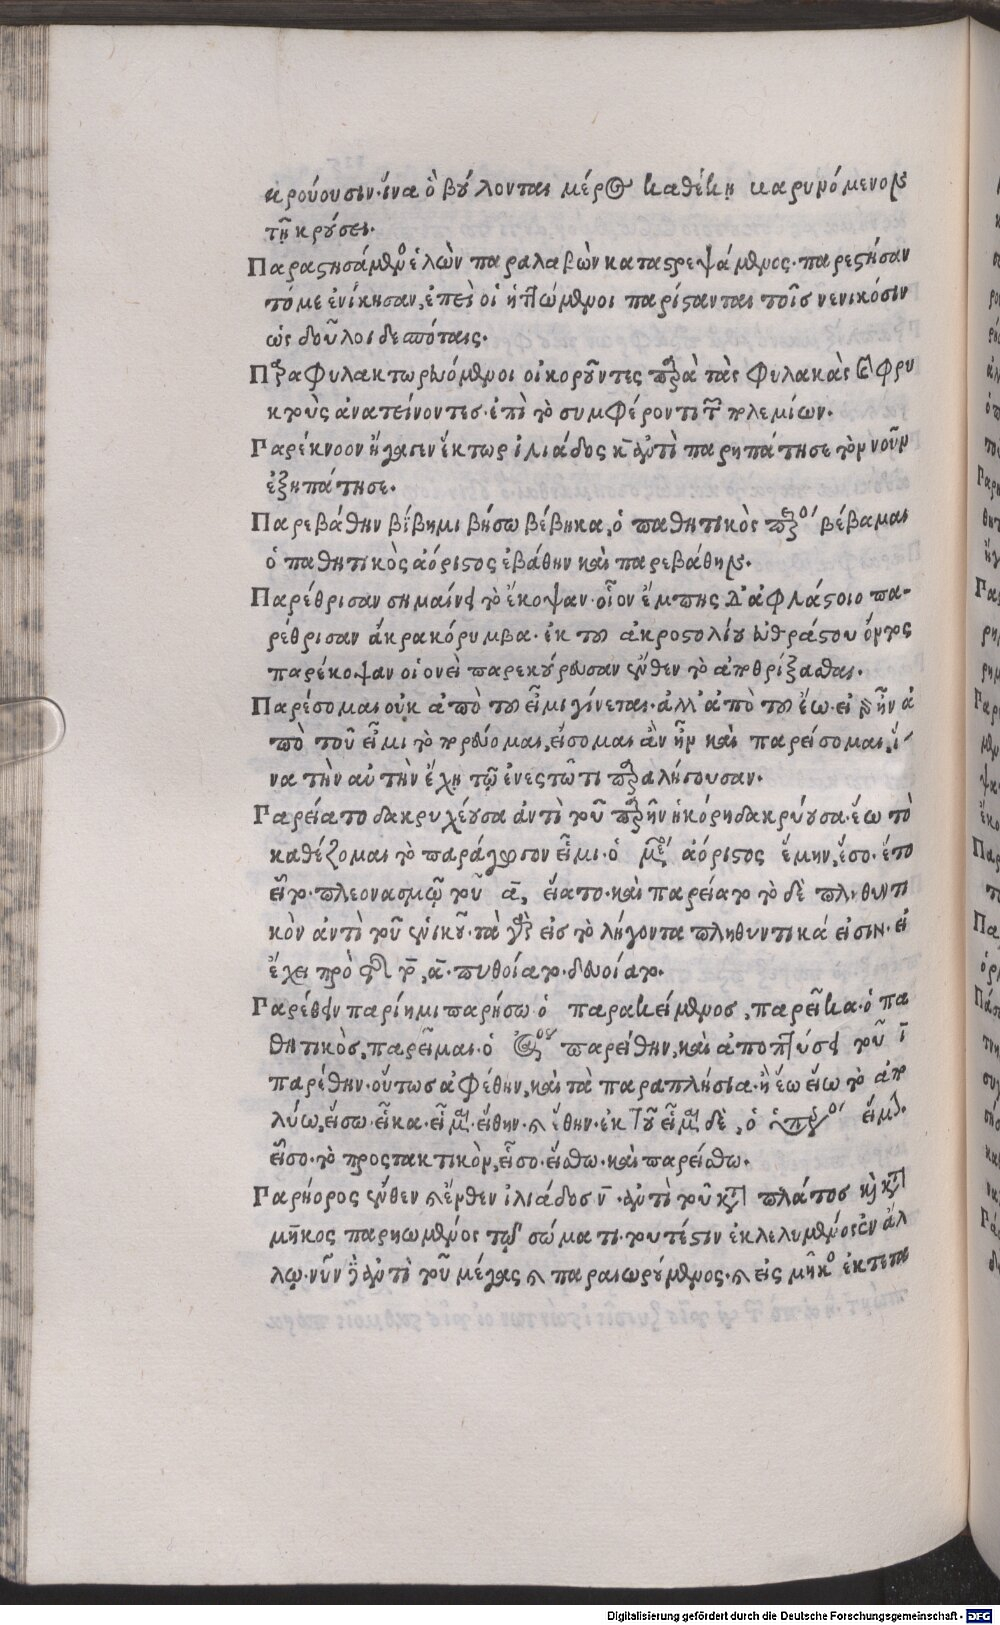 κρούουσιν. ἵνα ὃ βούλονται μέρος καθέκῃ καρυνόμενον
τῇ κρούσει.
Παραστησάμενος ἑλὼν παραλαβὼν καταστρεψάμενος. παρεστήσαν
τό με ἐνίκησαν, ἐπεὶ οἱ ἡττώμενοι παρίστανται τοῖς νενικόσιν
ὡς δοῦλοι δεσπόταις.
Παραφυλακτωρευόμενοι οἰκοροῦντες παρὰ τὰς φυλακὰς καὶ φρυ
κτοὺς ἀνατείνοντες. ἐπὶ τὸ συμφέροντι τῶν πολεμίων.
Παρέκνοον ἤγαγεν ἕκτωρ ἰλιάδος κ̄ ἀντὶ παρηπάτησε τὸν νοῦν
ἐξηπάτησε.
Παρεβάθην βίβημι βήσω βέβηκα, ὁ παθητικὸς παρακείμενος βέβαμαι
ὁ παθητικὸς ἀόριστος ἐβάθην καὶ παρεβάθην.
Παρέθρισαν σημαίνει τὸ ἔκοψαν. οἷον ἔμπης δ' ἀφλάστοιο πα-
ρέθρισαν ἄκρα κόρυμβα. ἐκ τοῦ ἀκροστολίου ἀφλάστου ὄντος
παρέκοψαν οἱονεὶ παρεκούρευσαν ἔνθεν τὸ ἀποθρίξασθαι.
Παρέσομαι οὐκ ἀπὸ τοῦ εἶμι γίνεται. ἀλλ' ἀπὸ τοῦ ἔω. εἰ γὰρ ἦν ἀ
πὸ τοῦ εἶμι τὸ πορεύομαι, εἴσομαι ἂν ἦν καὶ παρείσομαι, ἵ-
να τὴν αὐτὴν ἔχῃ τῷ ἐνεστῶτι παραλήγουσαν.
Παρείατο δακρυχέουσα ἀντὶ τοῦ παρῆν ἡ κόρη δακρύουσα. ἕω τὸ
καθέζομαι τὸ παράγωγον εἷμι. ὁ μέσος ἀόριστος ἕμην, ἕσο. ἕτο
εἷτο. πλεονασμῷ τοῦ ᾱ, εἵατο. καὶ παρείατο τὸ δὲ πληθυντι
κὸν ἀντὶ τοῦ ἑνικοῦ. τὰ γὰρ εἰς το λήγοντα πληθυντικά εἰσιν. εἰ
ἔχει πρὸ τοῦ τ̄, ᾱ. πυθοίατο. δευοίατο.
Παρέθην παρίημι παρήσω. ὁ παρακείμενος, παρεῖκα. ὁ πα
θητικὸς, παρεῖμαι. ὁ ἀόριστος παρείθην, καὶ ἀποπτύσει τοῦ ῑ
παρέθην. οὕτως ἀφέθην, καὶ τὰ παραπλήσια. ἢ ἕω εἵω τὸ ἀπο
λύω, εἵσω. εἷκα. εἷμαι. εἵθην. καὶ ἕθην. ἐκ τοῦ εἷμαι δὲ, ὁ ὑπερσυντέλικος εἵμην.
εἷσο. τὸ προστακτικὸν, εἷσο. εἵσθω. καὶ παρείσθω.
Παρήορος ἔνθεν καὶ ἔνθεν ἰλιάδος η̄. ἀντὶ τοῦ κατὰ πλάτος καὶ κατὰ
μῆκος παρηωμένος τῷ σώματι. τουτέστιν ἐκλελυμένος ἐν ἄλ
λῳ. νῦν δὲ ἀντὶ τοῦ μέγας καὶ παραιωρούμενος. καὶ εἰς μῆκος ἐκτετα
Digitalisierung gefördert durch die Deutsche Forschungsgemeinschaft - DFG